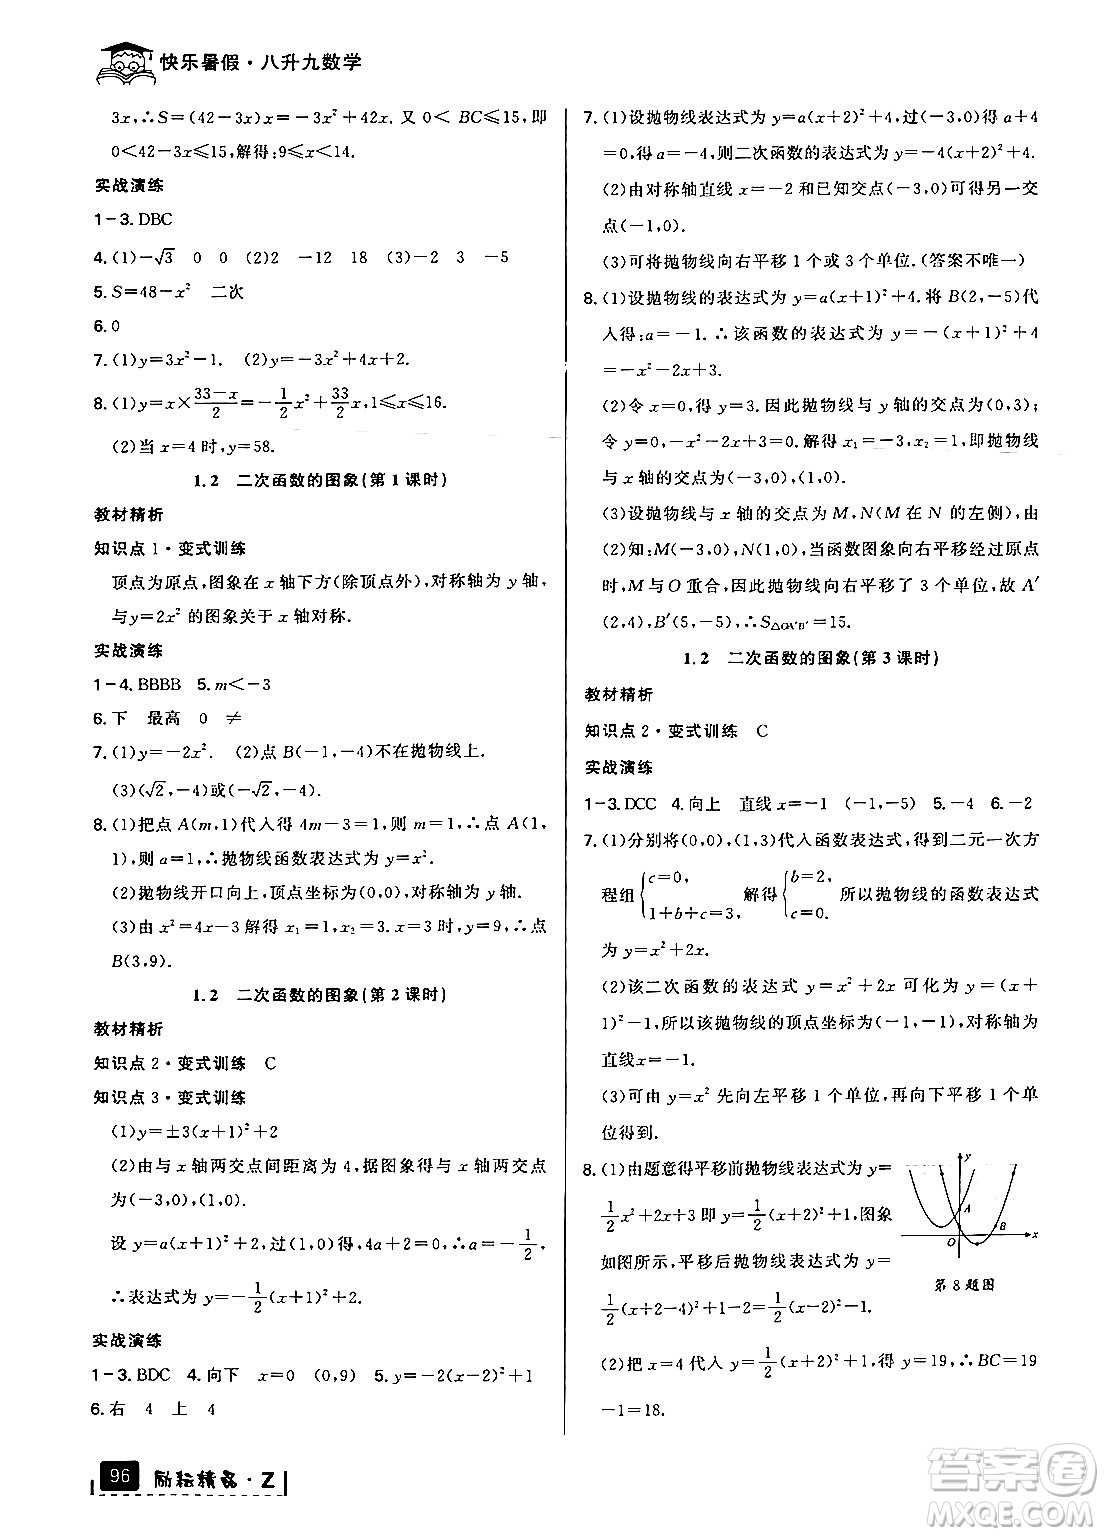 快乐暑假·八升九数学
3x,∴S=(42-3x)x=-3x²+42x.又0<BC≤15,即
0<42-3x≤15,解得:9≤x<14.
实战演练
1-3.DBC
4.(1)-√3 0 0 (2)2 -12 18 (3)-2 3 -5
5.S=48-x² 二次
6.0
7.(1)y=3x²-1. (2)y=-3x²+4x+2.
8.(1)y=x×(33-x)/2=-1/2x²+33/2x,1≤x≤16.
(2)当x=4时,y=58.
1.2 二次函数的图象(第1课时)
教材精析
知识点1·变式训练
顶点为原点,图象在x轴下方(除顶点外),对称轴为y轴,
与y=2x²的图象关于x轴对称.
实战演练
1-4.BBBB 5.m<-3
6.下 最高 0 ≠
7.(1)y=-2x². (2)点B(-1,-4)不在抛物线上.
(3)(√2,-4)或(-√2,-4).
8.(1)把点A(m,1)代入得4m-3=1,则m=1,∴点A(1,
1),则a=1,∴抛物线函数表达式为y=x².
(2)抛物线开口向上,顶点坐标为(0,0),对称轴为y轴.
(3)由x²=4x-3解得x₁=1,x₂=3.当x=3时,y=9,∴点
B(3,9).
1.2 二次函数的图象(第2课时)
教材精析
知识点2·变式训练 C
知识点3·变式训练
(1)y=±3(x+1)²+2
(2)由与x轴两交点间距离为4,据图象得与x轴两交点
为(-3,0),(1,0).
设y=a(x+1)²+2,过(1,0)得,4a+2=0,∴a=-1/2,
∴表达式为y=-1/2(x+1)²+2.
实战演练
1-3.BDC 4.向下 x=0 (0,9) 5.y=-2(x-2)²+1
6.右 4 上 4
96 励耘精品·Z
7.(1)设抛物线表达式为y=a(x+2)²+4,过(-3,0)得a+4
=0,得a=-4,则二次函数的表达式为y=-4(x+2)²+4.
(2)由对称轴直线x=-2和已知交点(-3,0)可得另一交
点(-1,0).
(3)可将抛物线向右平移1个或3个单位.(答案不唯一)
8.(1)设抛物线的表达式为y=a(x+1)²+4.将B(2,-5)代
入得:a=-1.∴该函数的表达式为y=-(x+1)²+4
=-x²-2x+3.
(2)令x=0,得y=3.因此抛物线与y轴的交点为(0,3);
令y=0,-x²-2x+3=0.解得x₁=-3,x₂=1,即抛物线
与x轴的交点为(-3,0),(1,0).
(3)设抛物线与x轴的交点为M,N(M在N的左侧),由
(2)知:M(-3,0),N(1,0),当函数图象向右平移经过原点
时,M与O重合,因此抛物线向右平移了3个单位,故A′
(2,4),B′(5,-5),∴S△OA′B′=15.
1.2 二次函数的图象(第3课时)
教材精析
知识点2·变式训练 C
实战演练
1-3.DCC 4.向上 直线x=-1 (-1,-5) 5.-4 6.-2
7.(1)分别将(0,0),(1,3)代入函数表达式,得到二元一次方
程组{c=0, 1+b+c=3, 解得{b=2, c=0. 所以抛物线的函数表达式
为y=x²+2x.
(2)该二次函数的表达式y=x²+2x可化为y=(x+
1)²-1,所以该抛物线的顶点坐标为(-1,-1),对称轴为
直线x=-1.
(3)可由y=x²先向左平移1个单位,再向下平移1个单
位得到.
8.(1)由题意得平移前抛物线表达式为y=
1/2x²+2x+3即y=1/2(x+2)²+1,图象
如图所示,平移后抛物线表达式为y=
1/2(x+2-4)²+1-2=1/2(x-2)²-1.
y
A
B
O
x
第8题图
(2)把x=4代入y=1/2(x+2)²+1,得y=19,∴BC=19
-1=18.
答案圈
MXQE.COM